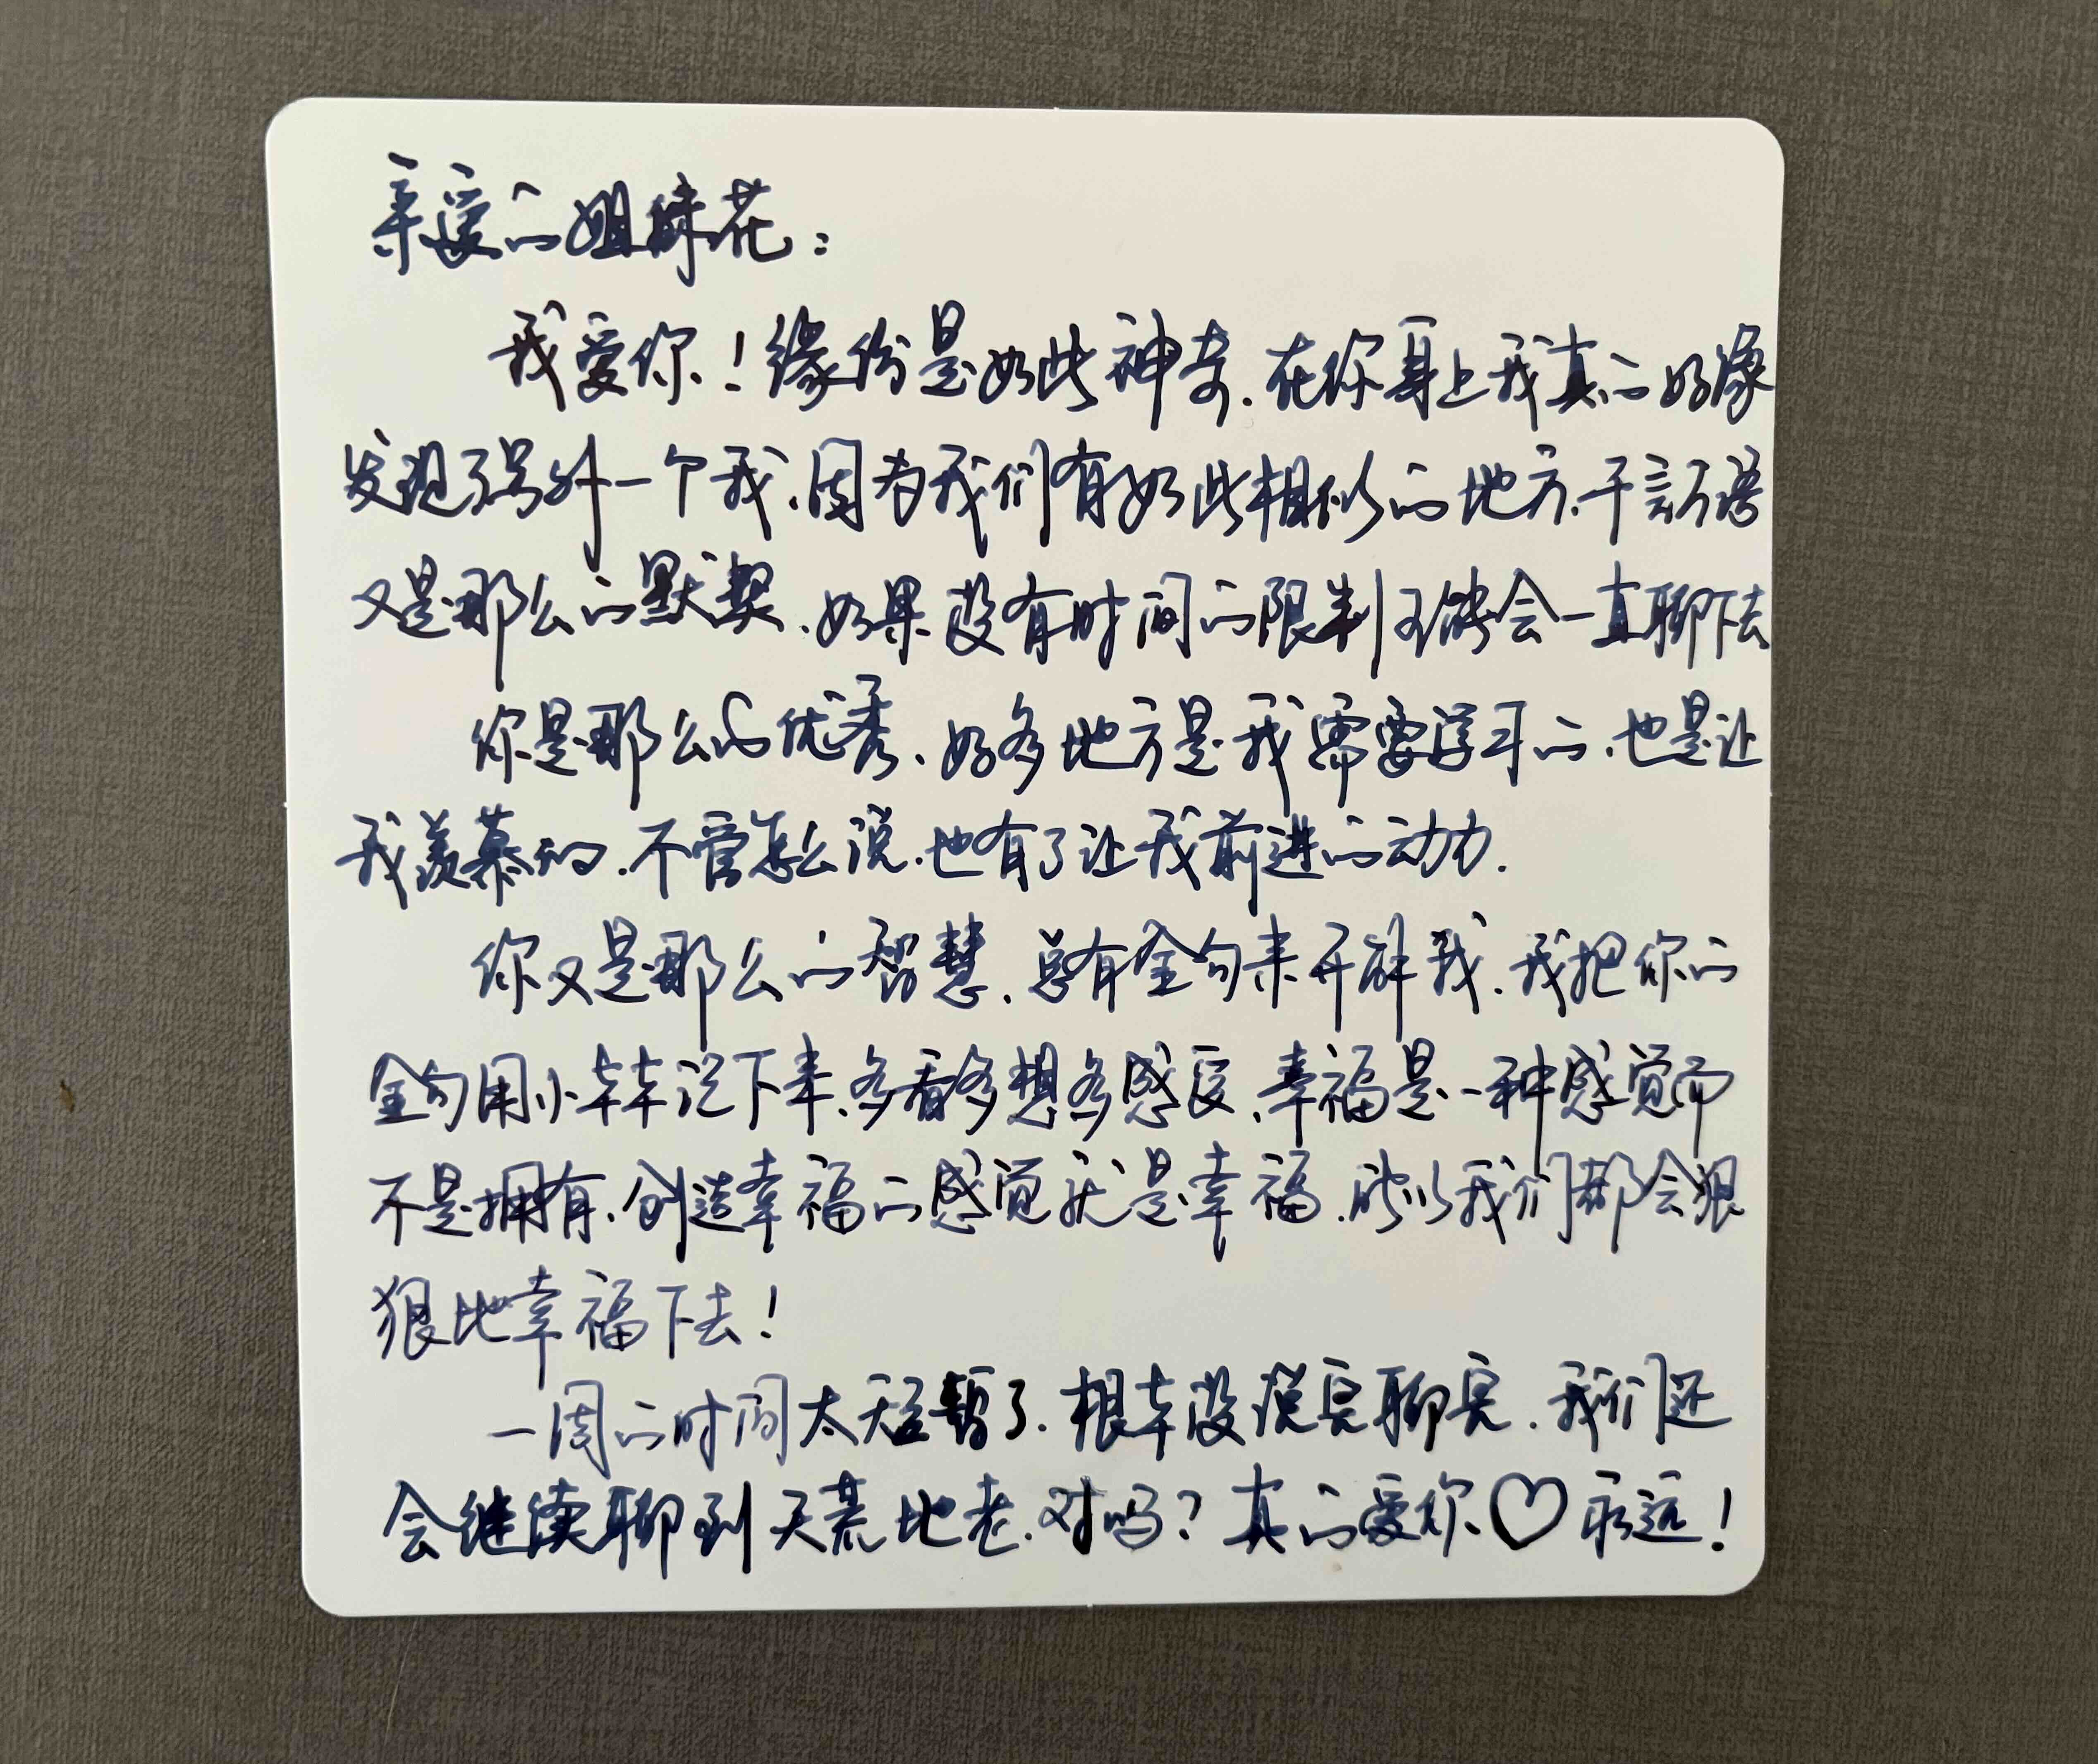 亲爱的姐妹花：
我爱你！缘份是如此神奇.在你身上我真的好像
发现了另外一个我.因为我们有如此相似的地方.千言万语
又是那么的默契.如果没有时间的限制可能会一直聊下去
你是那么的优秀、好多地方是我需要学习的.也是让
我羡慕的.不管怎么说.也有了让我前进的动力.
你又是那么的智慧.总有金句来开解我.我把你的
金句用小本本记下来.多看多想多感受.幸福是一种感觉而
不是拥有.创造幸福的感觉就是幸福.所以我们都会狠
狠地幸福下去！
一周的时间太短暂了.根本没说完聊完.我们还
会继续聊到天荒地老.对吗？真的爱你♡永远！